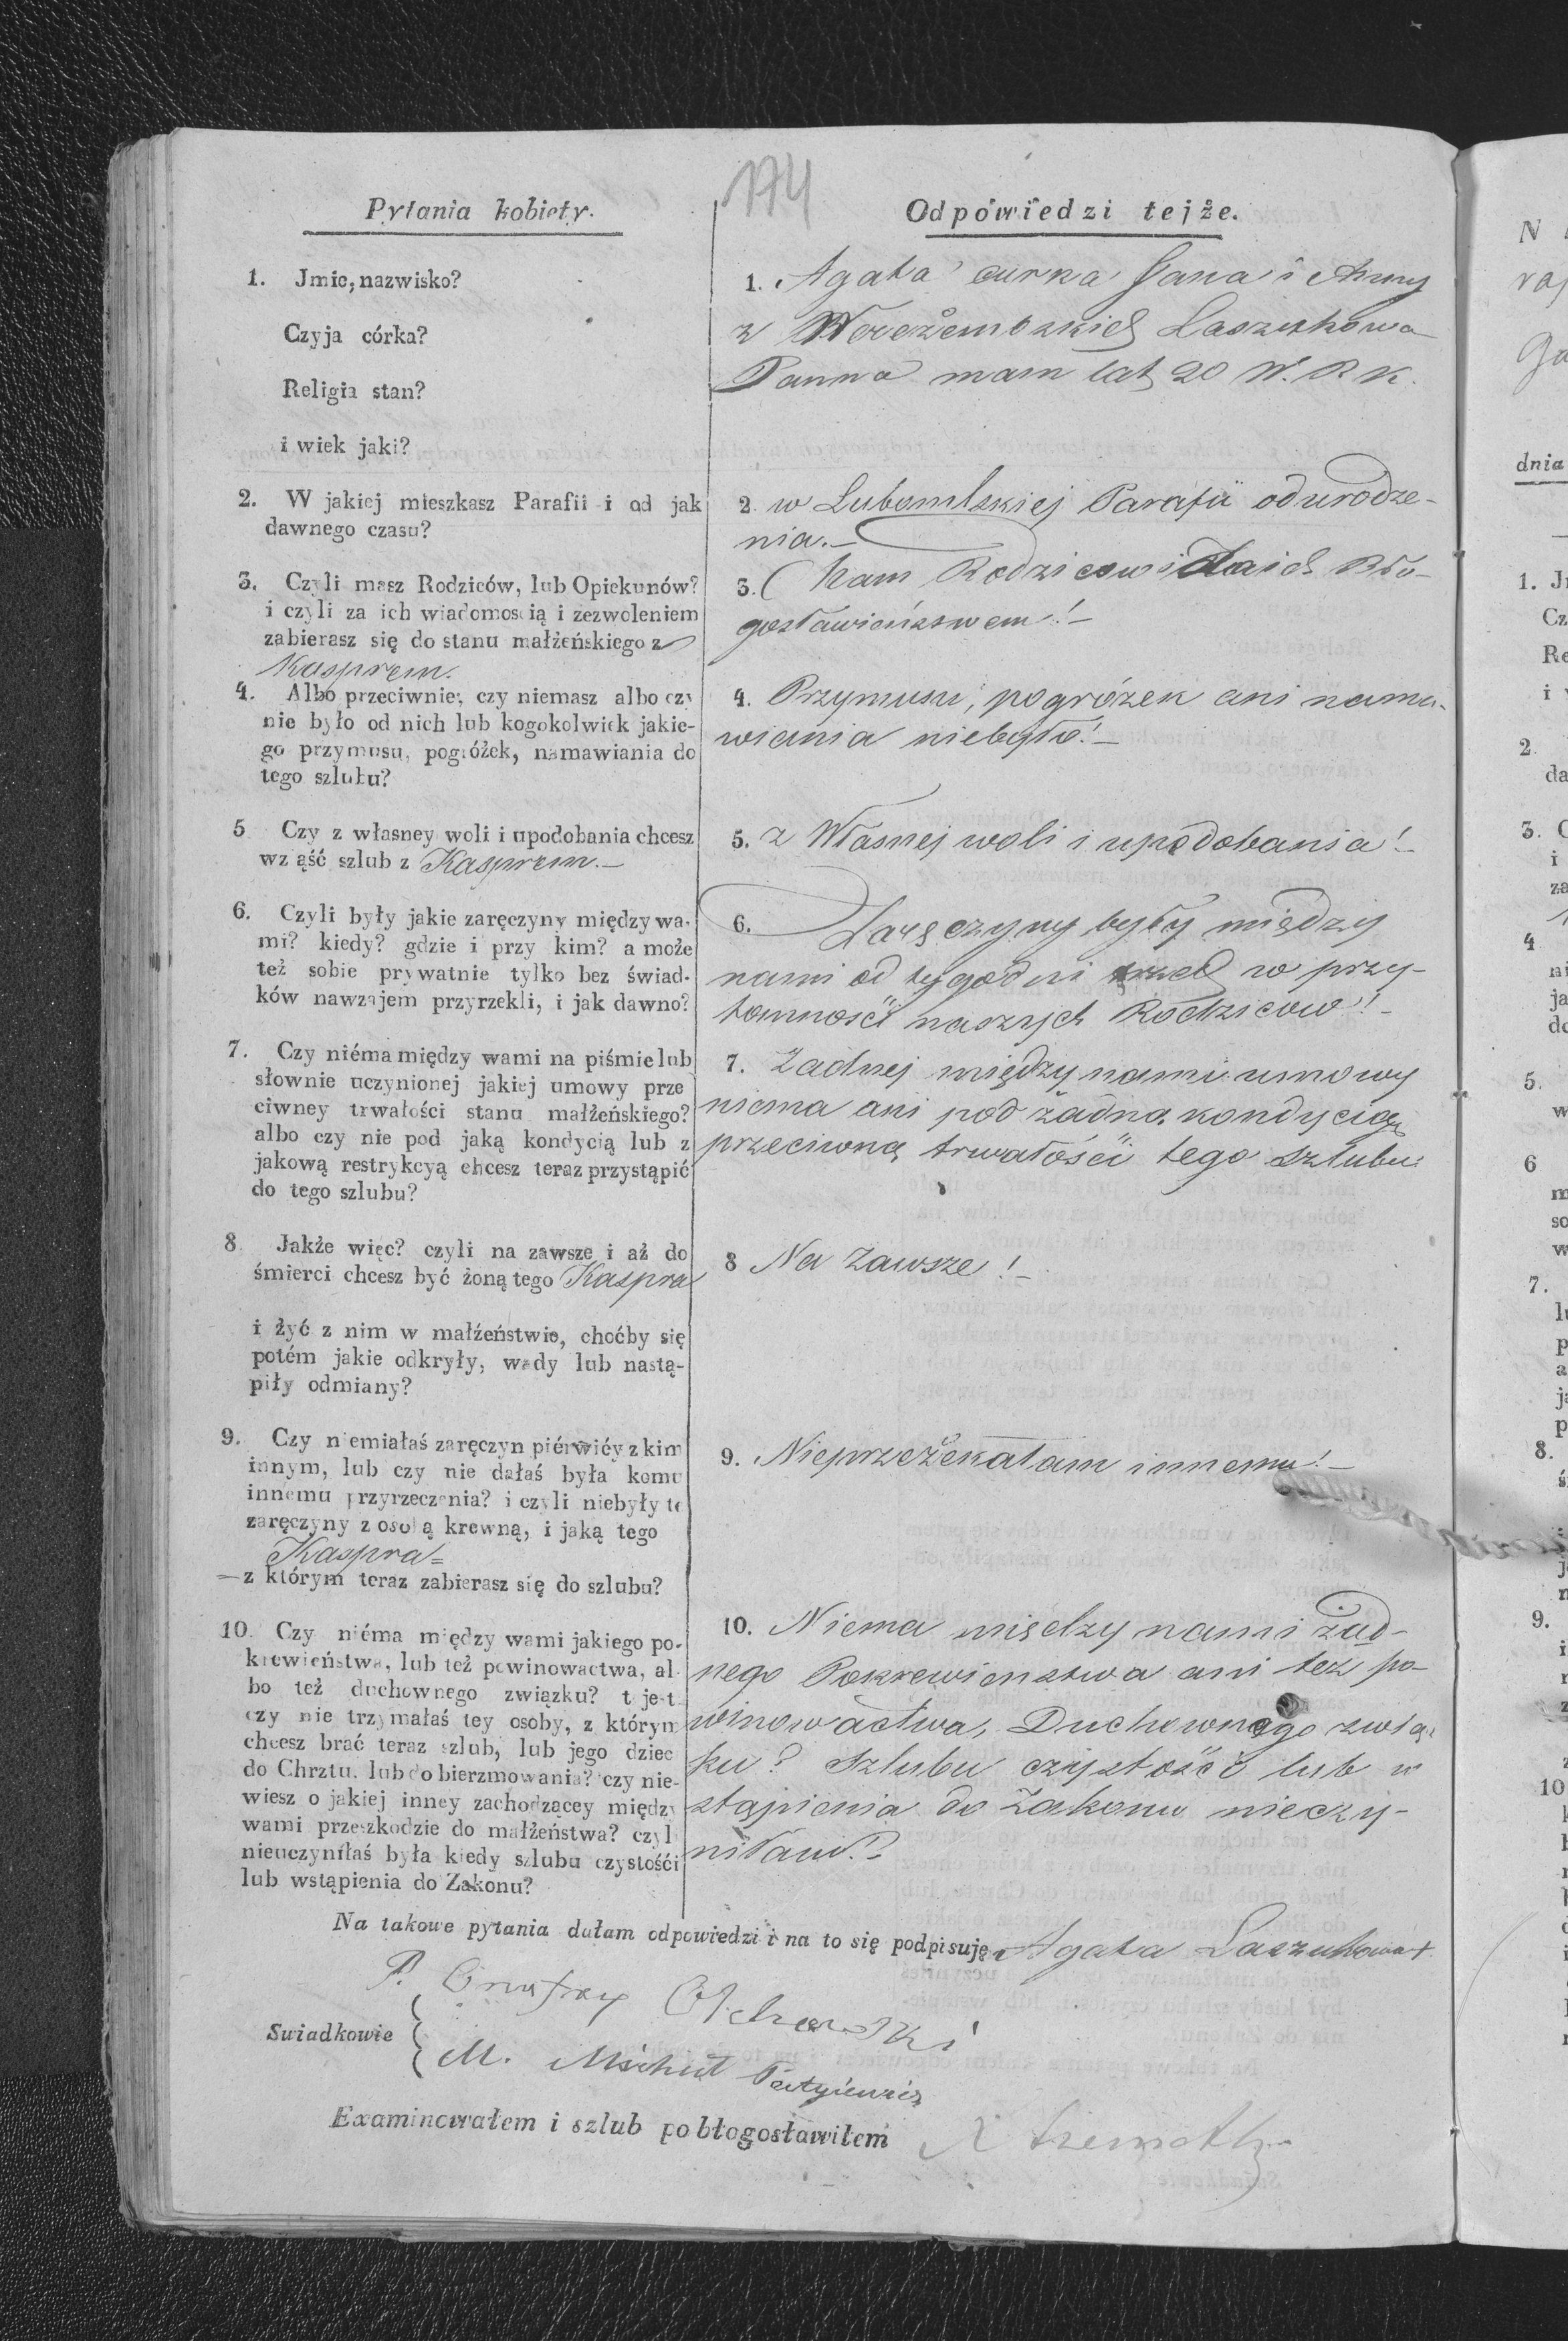 174
Pytania kobiety.
Odpówiedzi tejże.
1. Jmie, nazwisko?
Czyja córka?
Religia stan?
i wiek jaki?
1. Agata curka Jana i Anny
z Laszukowa
Panna mam lat 20 W. R K.
2. W jakiej mieszkasz Parafii i od jak
dawnego czasu?
2. w Lubomlskiej Parafii od urodze-
nia.—
3. Czyli masz Rodziców, lub Opiekunów?
i czyli za ich wiadomoscią i zezwoleniem
zabierasz się do stanu małżeńskiego z
Kasprem.
3. Mam Rodzicow i Bło-
gosławieństwem!—
4. Albo przeciwnie, czy niemasz albo czy
nie było od nich lub kogokolwiek jakie-
go przymusu, pogróżek, namawiania do
tego szlubu?
4. Przymusu, pogróżek ani nama-
wiania niebyło!—
5 Czy z własney woli i upodobania chcesz
wz ąść szlub z Kasprem.—
5. z Własnej woli i upodobania!—
6. Czyli były jakie zaręczyny między wa-
mi? kiedy? gdzie i przy kim? a może
też sobie prywatnie tylko bez świad-
ków nawzajem przyrzekli, i jak dawno?
6. Zaręczyny były między
nami od tygodni trzech w przy-
tomności naszych Rodzicow!—
7. Czy niéma między wami na piśmie lub
słownie uczynionej jakiej umowy prze
ciwney trwałości stanu małżeńskiego?
albo czy nie pod jaką kondycią lub z
jakową restrykcyą chcesz teraz przystąpić
do tego szlubu?
7. Żadnej między nami umowy
niema ani pod żadną kondycią
przeciwną trwałości tego szlubu
8 Jakże więc? czyli na zawsze i aż do
śmierci chcesz być żoną tego Kaspra
i żyć z nim w małżeństwie, choćby się
potém jakie odkryły, wady lub nastą-
piły odmiany?
8 Na zawsze!—
9. Czy niemiałaś zaręczyn piérwiéy z kim
innym, lub czy nie dałaś była komu
innemu przyrzeczenia? i czyli niebyły te
zaręczyny z osobą krewną, i jaką tego
Kaspra=
—z którym teraz zabierasz się do szlubu?
9. Nieprzeżekałam innemu!—
10. Czy niéma między wami jakiego po-
krewieństwa, lub też powinowactwa, al-
bo też duchownego związku? t jest
czy nie trzymałaś tey osoby, z którym
chcesz brać teraz szlub, lub jego dziec
do Chrztu. lub do bierzmowania? czy nie-
wiesz o jakiej inney zachodzącey między
wami przeszkodzie do małżeństwa? czyl
nieuczyniłaś była kiedy szlubu czystości
lub wstąpienia do Zakonu?
10. Niema między nami żad-
nego Pokrewienstwa ani też po-
winowactwa, Duchownego związ-
ku? Szlubu czystości lub w
stąpienia do Zakonu nieczy-
niłam?—
Na takowe pytania dałam odpowiedzi i na to się podpisuję Agata Laszukowa +
Swiadkowie
P.
M. Michał
Examinowałem i szlub pobłogosławiłem